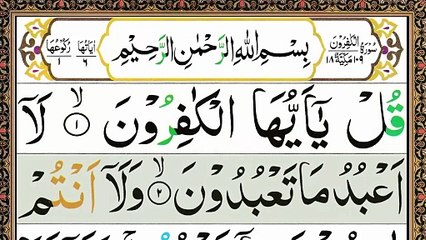 سُوْرَةُ الْكٰفِرُوْنَ
١٠٩ مَكِّيَّةٌ ١٨
بِسْمِ اللّٰهِ الرَّحْمٰنِ الرَّحِيْمِ
اٰيَاتُهَا ٦
رُكُوْعُهَا ١
قُلْ يٰۤاَيُّهَا الْكٰفِرُوْنَ ۙ‏﴿١﴾ لَاۤ
اَعْبُدُ مَا تَعْبُدُوْنَ ۙ‏﴿٢﴾ وَلَاۤ اَنْتُمْ